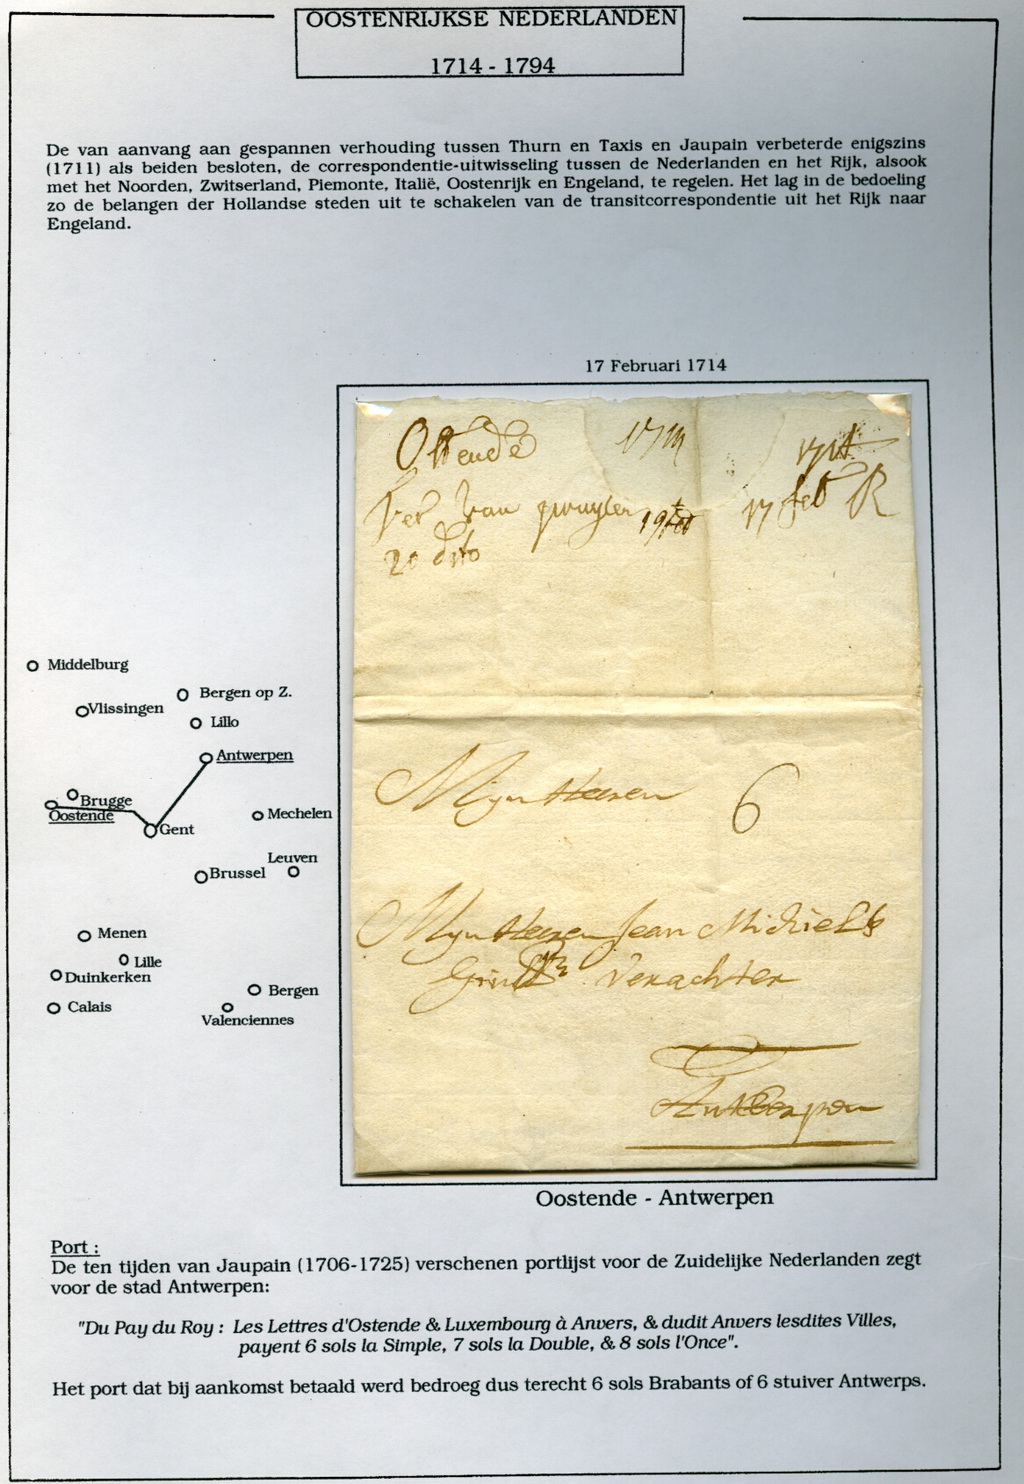 OOSTENRIJKSE NEDERLANDEN
1714 - 1794
De van aanvang aan gespannen verhouding tussen Thurn en Taxis en Jaupain verbeterde enigszins
(1711) als beiden besloten, de correspondentie-uitwisseling tussen de Nederlanden en het Rijk, alsook
met het Noorden, Zwitserland, Piemonte, Italië, Oostenrijk en Engeland, te regelen. Het lag in de bedoeling
zo de belangen der Hollandse steden uit te schakelen van de transitcorrespondentie uit het Rijk naar
Engeland.
17 Februari 1714
Ostende 1714
17 feb R
20 dito
Mijn Heeren 6
Mijn Heeren Jean Michiels
Verachter
Antwerpen
Middelburg
Bergen op Z.
Vlissingen
Lillo
Antwerpen
Brugge
Oostende
Mechelen
Gent
Leuven
Brussel
Menen
Lille
Duinkerken
Bergen
Calais
Valenciennes
Oostende - Antwerpen
Port :
De ten tijden van Jaupain (1706-1725) verschenen portlijst voor de Zuidelijke Nederlanden zegt
voor de stad Antwerpen:
"Du Pay du Roy : Les Lettres d'Ostende & Luxembourg à Anvers, & dudit Anvers lesdites Villes,
payent 6 sols la Simple, 7 sols la Double, & 8 sols l'Once".
Het port dat bij aankomst betaald werd bedroeg dus terecht 6 sols Brabants of 6 stuiver Antwerps.